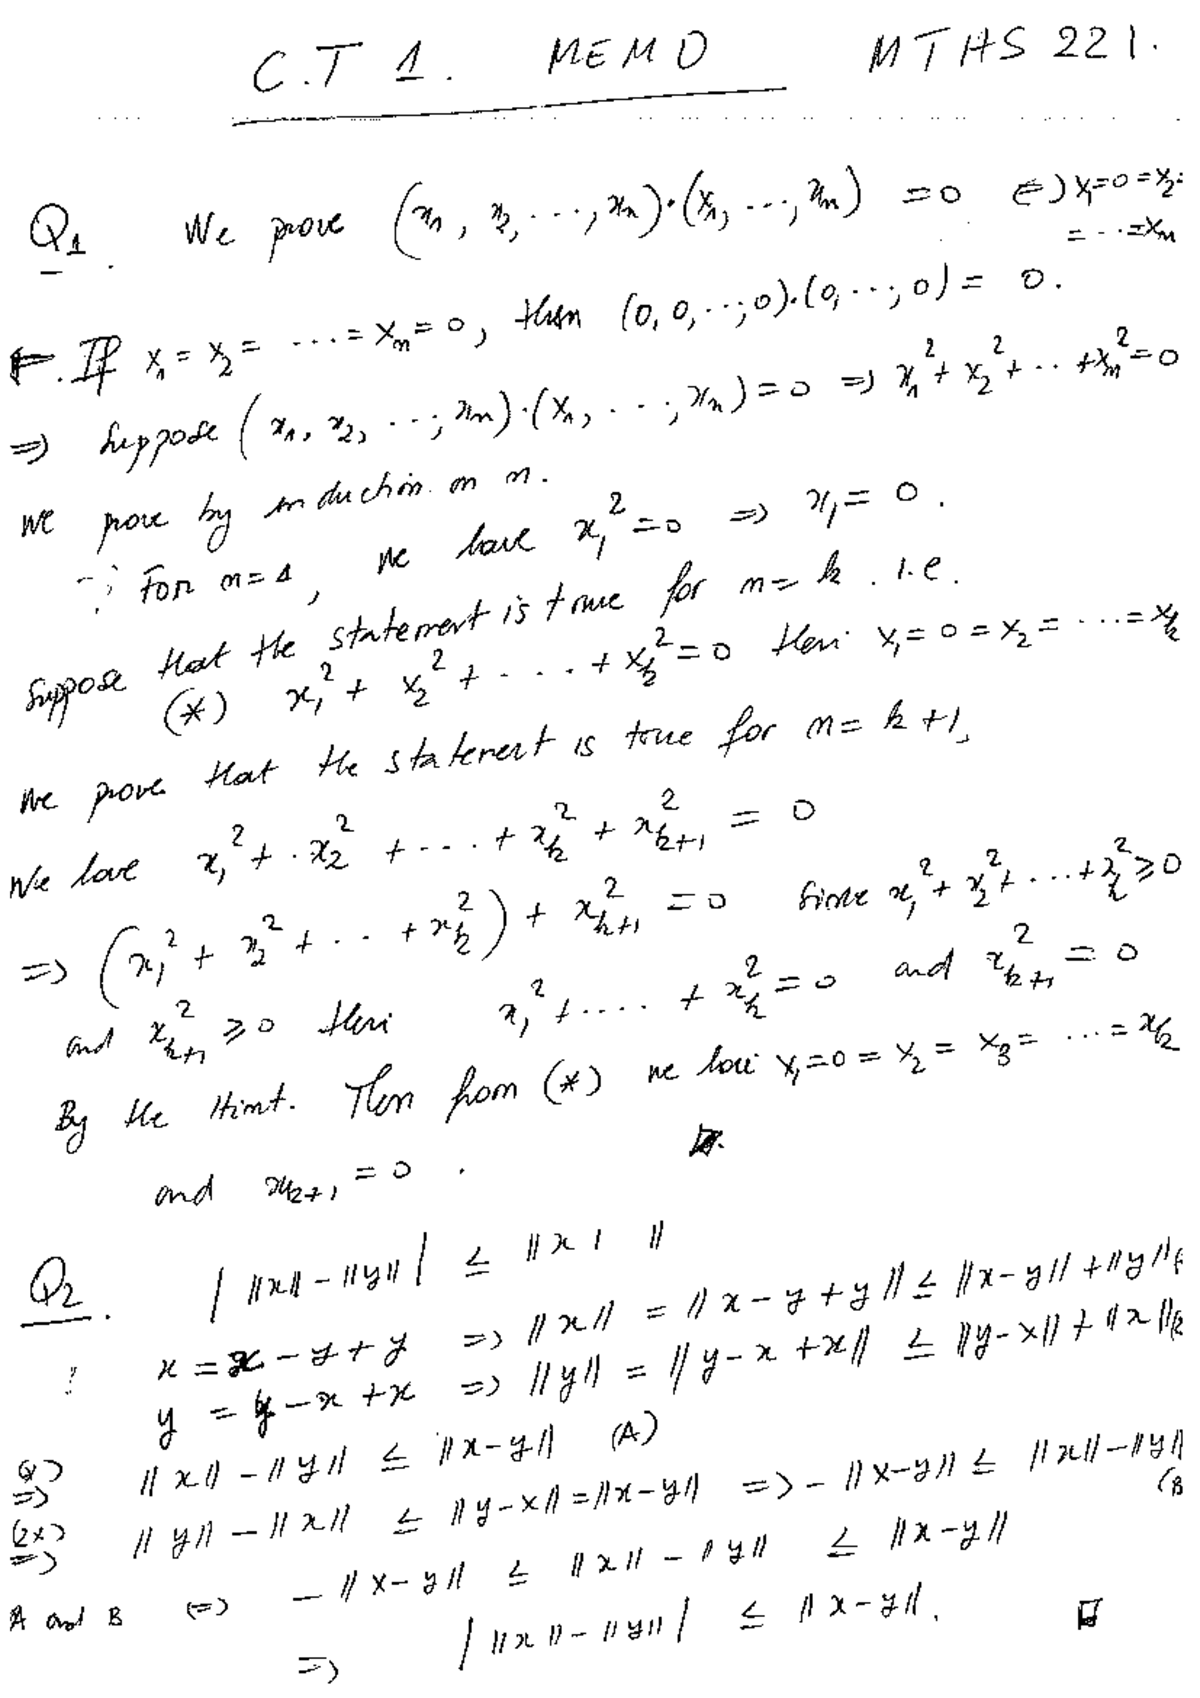 C.T 1. MEMO MTHS 221.
Q1. We prove (x₁, x₂, ..., xₙ)·(x₁, ..., xₙ) = 0 ⇔ x₁=0=x₂=
= ... = xₙ
⇐. If x₁ = x₂ = ... = xₙ = 0, then (0, 0, ..., 0)·(0, ..., 0) = 0.
⇒ Suppose (x₁, x₂, ..., xₙ)·(x₁, ..., xₙ) = 0 ⇒ x₁² + x₂² + ... + xₙ² = 0
We prove by induction on n.
For n = 1, we have x₁² = 0 ⇒ x₁ = 0.
Suppose that the statement is true for n = k. i.e.
(*) x₁² + x₂² + ... + xₖ² = 0 then x₁ = 0 = x₂ = ... = xₖ
We prove that the statement is true for n = k+1,
We have x₁² + x₂² + ... + xₖ² + xₖ₊₁² = 0
⇒ (x₁² + x₂² + ... + xₖ²) + xₖ₊₁² = 0 Since x₁² + x₂² + ... + xₖ² ≥ 0
and xₖ₊₁² ≥ 0 then x₁² + ... + xₖ² = 0 and xₖ₊₁² = 0
By the Hint. Then from (*) we have x₁ = 0 = x₂ = x₃ = ... = xₖ
and xₖ₊₁ = 0.
Q2. | ||x|| - ||y|| | ≤ ||x ||
x = x - y + y ⇒ ||x|| = ||x - y + y|| ≤ ||x - y|| + ||y||
y = y - x + x ⇒ ||y|| = ||y - x + x|| ≤ ||y - x|| + ||x||
⇒ ||x|| - ||y|| ≤ ||x - y|| (A)
(2*) ⇒ ||y|| - ||x|| ≤ ||y - x|| = ||x - y|| ⇒ - ||x - y|| ≤ ||x|| - ||y|| (B
A and B ⇔ - ||x - y|| ≤ ||x|| - ||y|| ≤ ||x - y||
⇒ | ||x|| - ||y|| | ≤ ||x - y||. □